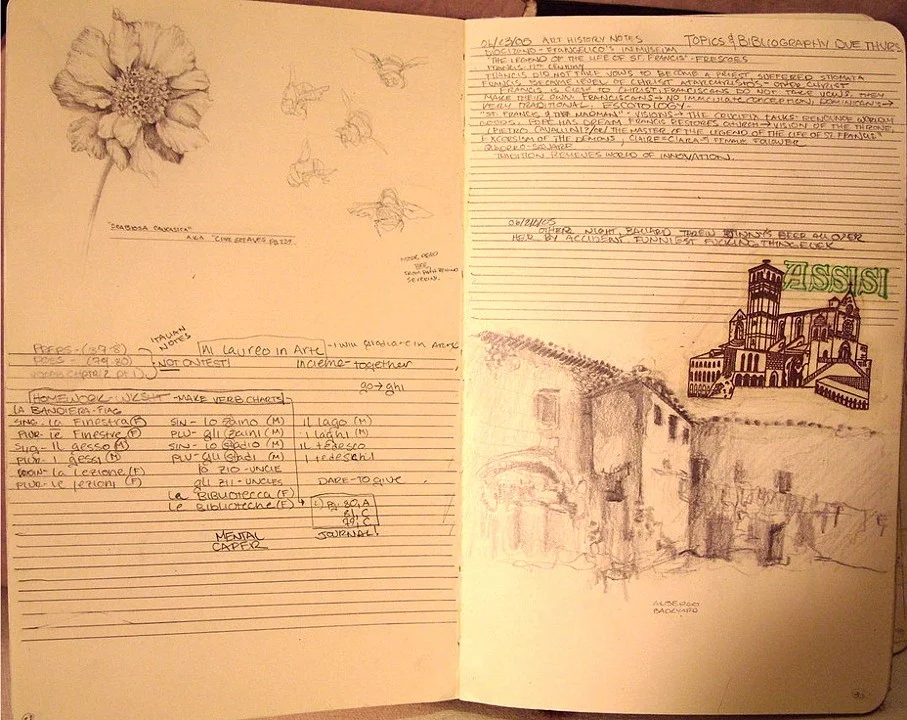 "SCABIOSA CAUCASICA"
AKA
MORE DEAD
BEE
ITALIAN
NOTES
PREPS - (378)
POSS - (79.80)
VOCAB CHPTR 2 pt 1
NOT ON TEST!
Mi Laureo in Arte - I will graduate in Arts
incieme - together
go → ghi
HOMEWORK - WKSHT - MAKE VERB CHARTS
LA BANDIERA - FlAG
SING - la Finestra (F)
PLUR - le Finestre (F)
Sing - il gesso (M)
PLUR - i gessi (M)
la Lezione (F)
PLUR - le lezioni (F)
SIN - lo zaino (M)
PLU - gli zaini (M)
SIN - lo stadio (M)
PLU - gli stadi (M)
lo ZIO - UNCLE
gli ZII - UNCLES
la BIBLIOTECCA (F)
Le BIBLIOTECHE (F)
il lago (M)
i laghi (M)
il tedesco
i tedeschi
DARE - TO GIVE
Pg. 80, A
81, C
79, C
MENTAL
CAPER
JOURNAL!
06/13/05 ART HISTORY NOTES
TOPICS & BIBLIOGRAPHY DUE THURS
FRANGELICO'S IN MUSEUM
"THE LEGEND OF THE LIFE OF ST. FRANCIS" - FRESCOES
CENTURY
FRANCIS DID NOT TAKE VOWS TO BECOME A PRIEST SUFFERED STIGMATA
FRANCIS BECAME LEVEL OF CHRIST OTHER CHRIST
FRANCIS IS CLOSE TO CHRIST, FRANCISCANS DO NOT TAKE VOWS, THEY
MAKE THEIR OWN. FRANCISCANS → NO IMMACULATE CONCEPTION, DOMINICANS →
VERY TRADITIONAL, ESCOTOLOGY -
"ST. FRANCIS & THE MADMAN" - VISIONS → THE CRUCIFIX TALKS - RENOUNCE WORLDLY
GOODS, POPE HAS DREAM FRANCIS RESTORES CHURCH → VISION OF THE THRONE,
(PIETRO CAVALLINI?/OR/THE MASTER OF THE LEGEND OF THE LIFE OF ST. FRANCIS"
EXCORSISM OF THE DEMONS, CLAIRE = CLARA → 1 FEMALE FOLLOWER
QUADRO - SQUARE
TRADITION RELIEVES WORLD OF INNOVATION.
OTHER NIGHT, BALLARD THREW BEER ALL OVER
HER BY ACCIDENT FUNNIEST FUCKING THING EVER
ASSISI
ALBERGO
BACKYARD